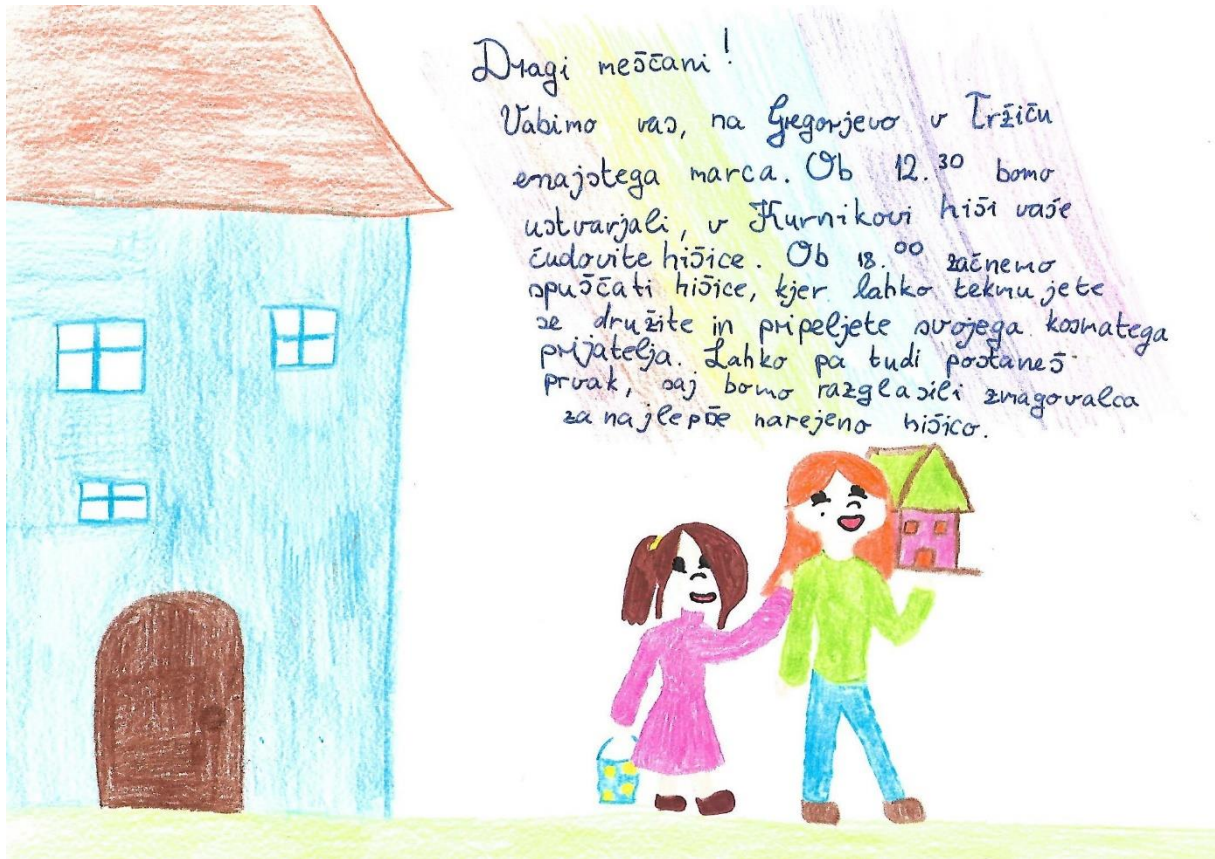 Dragi meščani!
Vabimo vas, na Gregorjevo v Tržiču
enajstega marca. Ob 12.30 bomo
ustvarjali, v Kurnikovi hiši vaše
čudovite hišice. Ob 18.00 začnemo
spuščati hišice, kjer lahko tekmujete
se družite in pripeljete svojega kosmatega
prijatelja. Lahko pa tudi postaneš
prvak, saj bomo razglasili zmagovalca
za najlepše narejeno hišico.